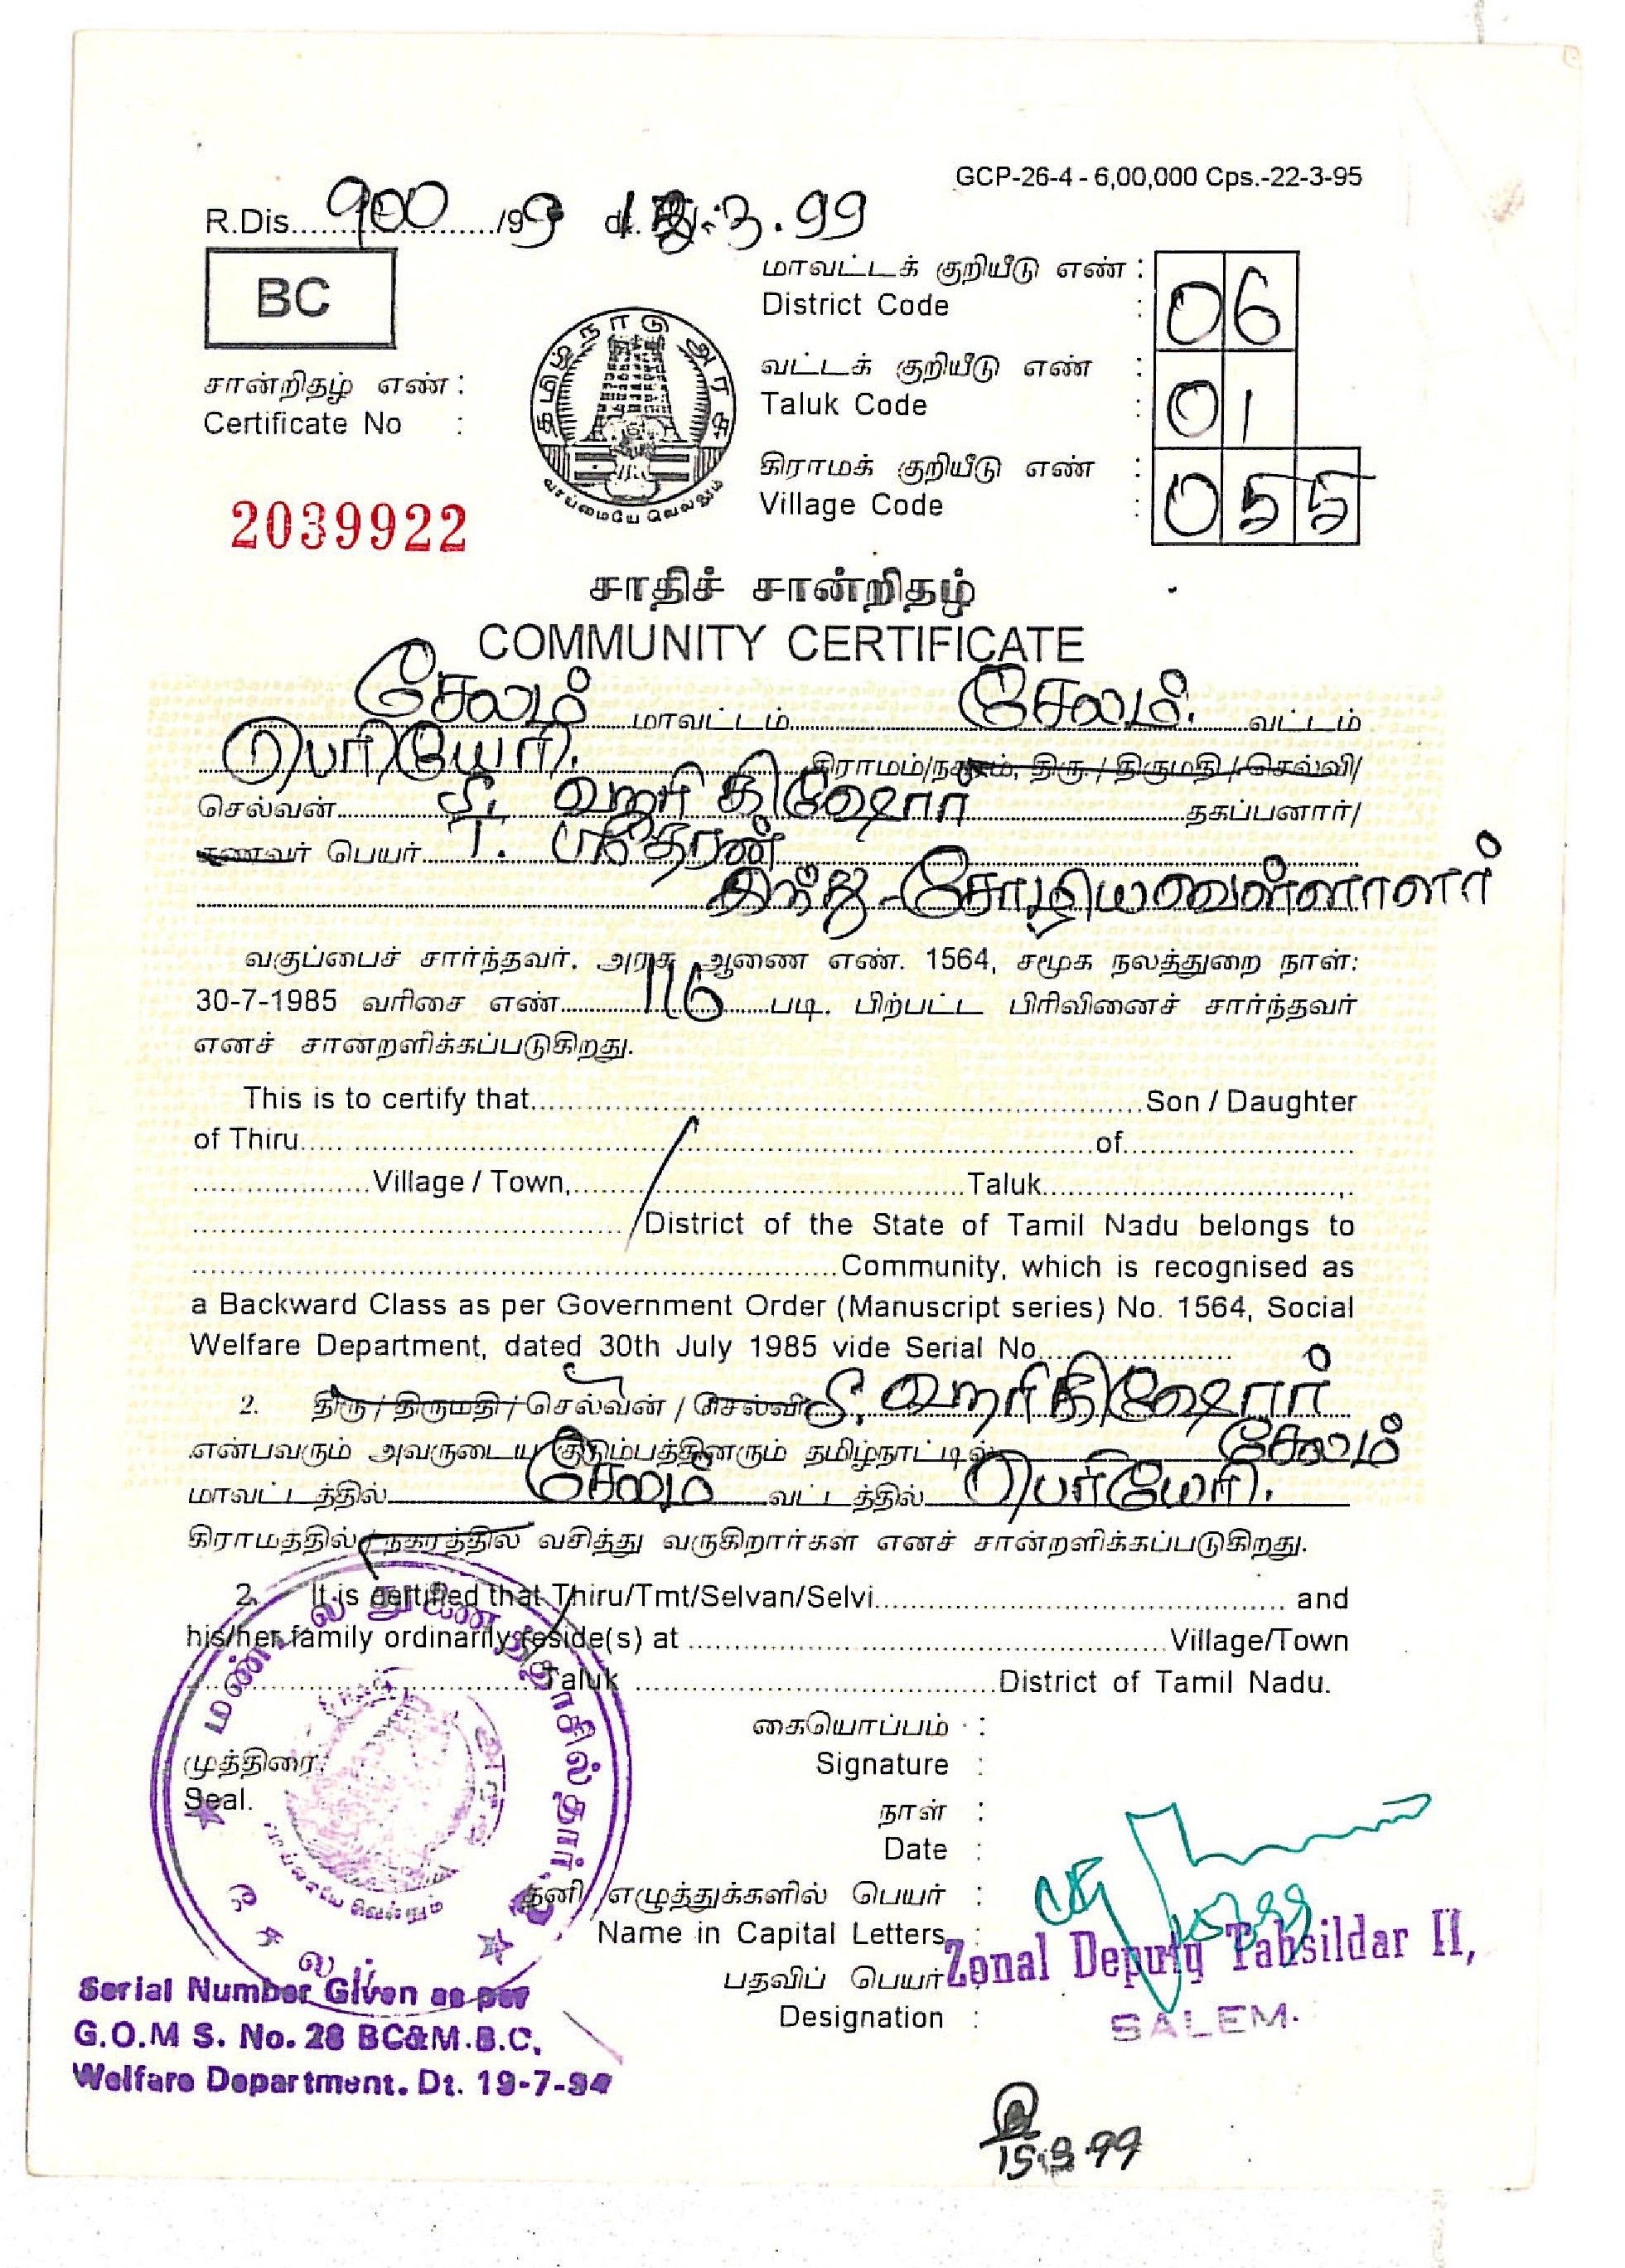 GCP-26-4 - 6,00,000 Cps.-22-3-95
R.Dis....900..../99 dt. .3.99
BC
மாவட்டக் குறியீடு எண் :
District Code : 06
வட்டக் குறியீடு எண் :
Taluk Code : 01
கிராமக் குறியீடு எண் :
Village Code : 055
சான்றிதழ் எண் :
Certificate No :
2039922
தமிழ்நாடு அரசு
வாய்மையே வெல்லும்
சாதிச் சான்றிதழ்
COMMUNITY CERTIFICATE
சேலம் மாவட்டம் சேலம். வட்டம்
பெரியேரி. கிராமம்/நகரம், திரு. / திருமதி / செல்வி/
செல்வன் ஸ்ரீ. ஹரி கிஷோர் தகப்பனார்/
கணவர் பெயர் T. ஸ்ரீதரன்
இந்து-சோழியவெள்ளாளர்
வகுப்பைச் சார்ந்தவர். அரசு ஆணை எண். 1564, சமூக நலத்துறை நாள்:
30-7-1985 வரிசை எண் 116 படி. பிற்பட்ட பிரிவினைச் சார்ந்தவர்
எனச் சான்றளிக்கப்படுகிறது.
This is to certify that....Son / Daughter
of Thiru....of....
....Village / Town,....Taluk....
....District of the State of Tamil Nadu belongs to
....Community, which is recognised as
a Backward Class as per Government Order (Manuscript series) No. 1564, Social
Welfare Department, dated 30th July 1985 vide Serial No....
2. திரு / திருமதி / செல்வன் / செல்வி ஸ்ரீ. ஹரிகிஷோர்
என்பவரும் அவருடைய குடும்பத்தினரும் தமிழ்நாட்டில் சேலம்
மாவட்டத்தில் சேலம் வட்டத்தில் பெரியேரி.
கிராமத்தில் / நகரத்தில் வசித்து வருகிறார்கள் எனச் சான்றளிக்கப்படுகிறது.
2. It is certified that Thiru/Tmt/Selvan/Selvi.... and
his/her family ordinarily reside(s) at ....Village/Town
....Taluk ....District of Tamil Nadu.
மண்டல துணை வட்டாசில்தார்
சேலம்
கையொப்பம் :
Signature :
முத்திரை:
Seal.
நாள் :
Date :
தனி எழுத்துக்களில் பெயர் :
Name in Capital Letters :
பதவிப் பெயர்
Zonal Deputy Tahsildar II,
Designation :
SALEM.
Serial Number Given as per
G.O.M S. No. 28 BC&M.B.C.
Welfare Department. Dt. 19-7-94
15.3.99